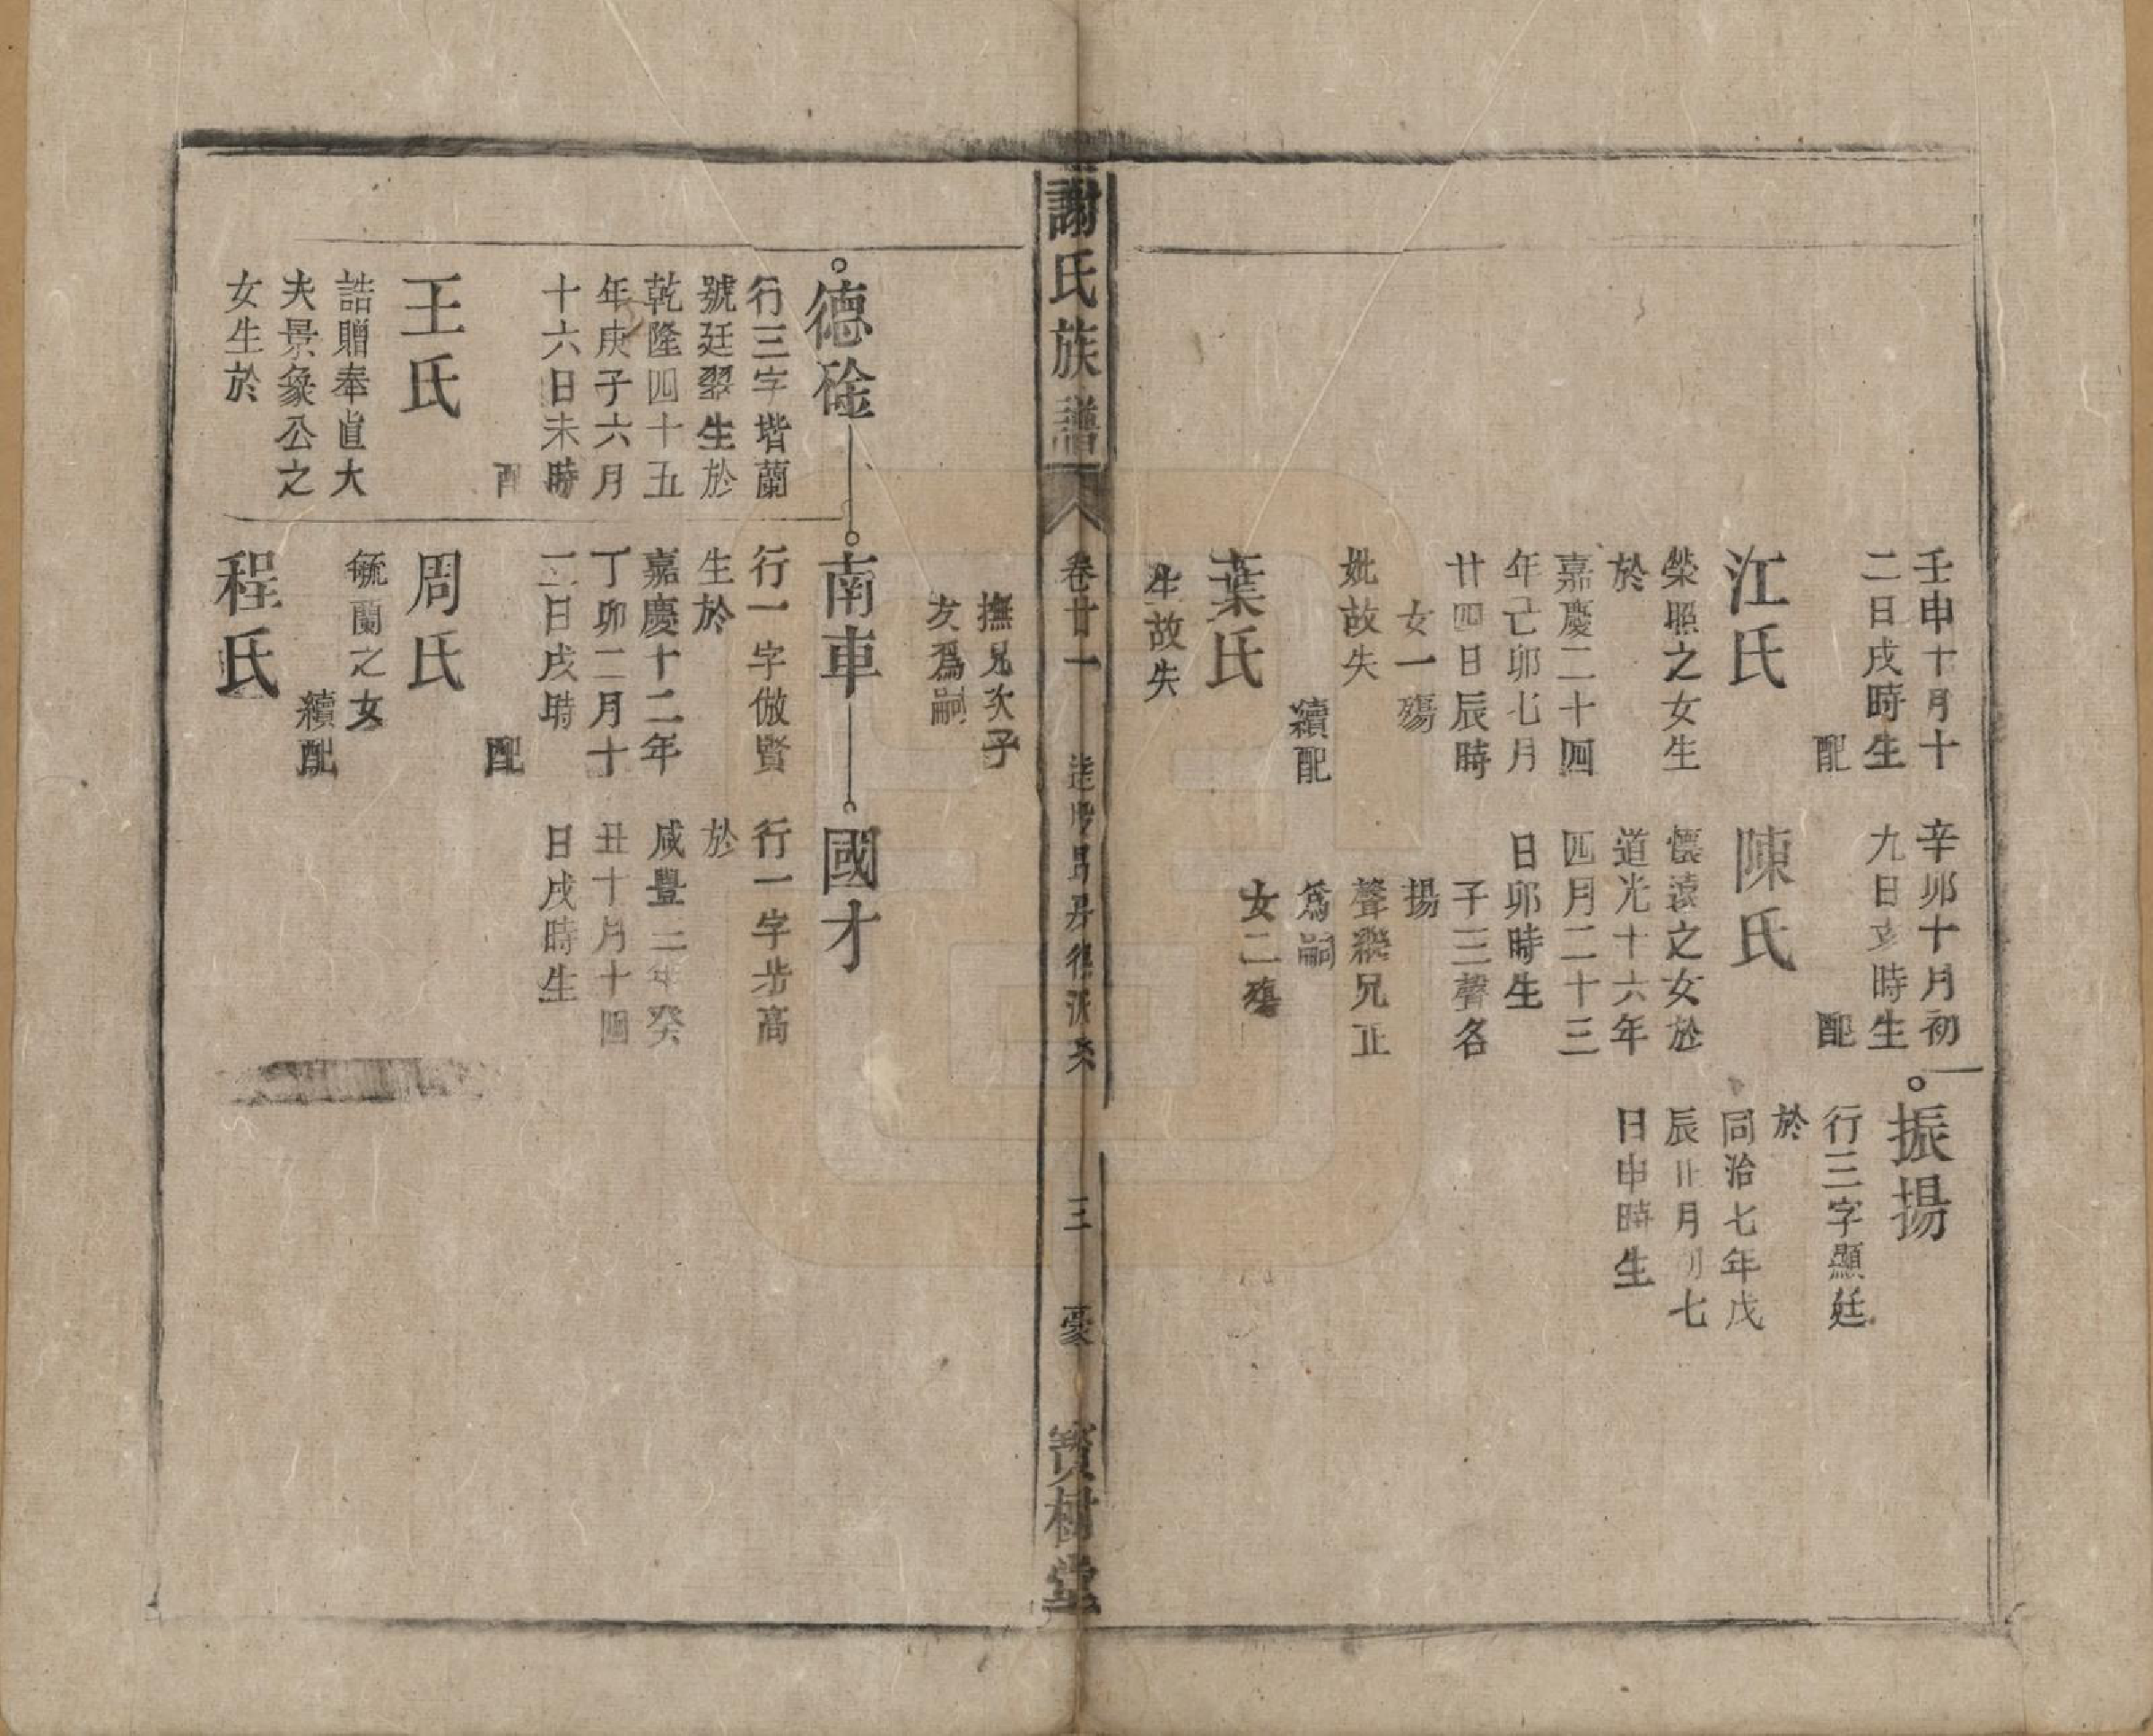 壬申十月十
二日戌時生
配
江氏
榮照之女生
於
嘉慶二十四
年己卯七月
廿四日辰時
女一殤
妣故失
續配
葉氏
生故失
撫兄次子
友爲嗣
辛卯十月初
九日亥時生
配
陳氏
懷遠之女於
道光十六年
四月二十三
日卯時生
子三聲名
揚
聲繼兄正
爲嗣
女二殤
振揚
行三字顯廷
於
同治七年戊
辰正月初七
日申時生
謝氏族譜
卷廿一
三
豪
寶樹堂
德硂
行三字堦蘭
號廷翠生於
乾隆四十五
年庚子六月
十六日未時
配
王氏
誥贈奉直大
夫景象公之
女生於
南車
行一字倣賢
生於
嘉慶十二年
丁卯二月十
二日戌時
配
周氏
毓蘭之女
續配
程氏
國才
行一字步高
於
咸豐三年癸
丑十月十四
日戌時生